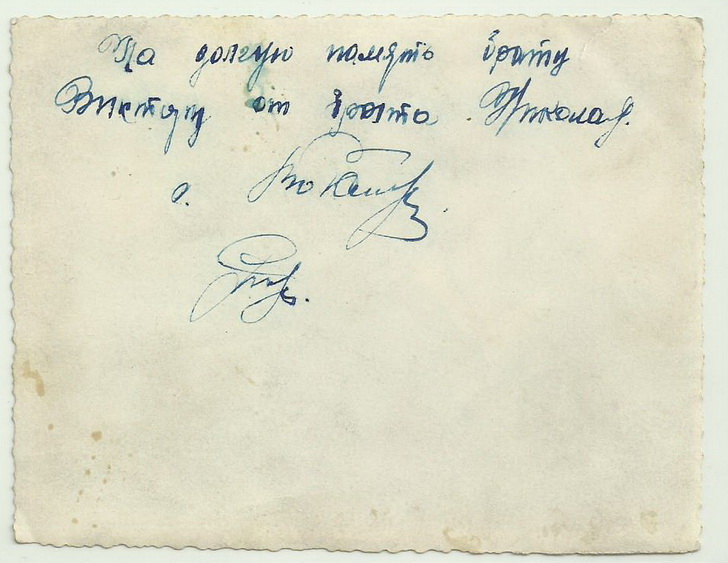 На долгую память брату
Виктору от брата Николая.
г.